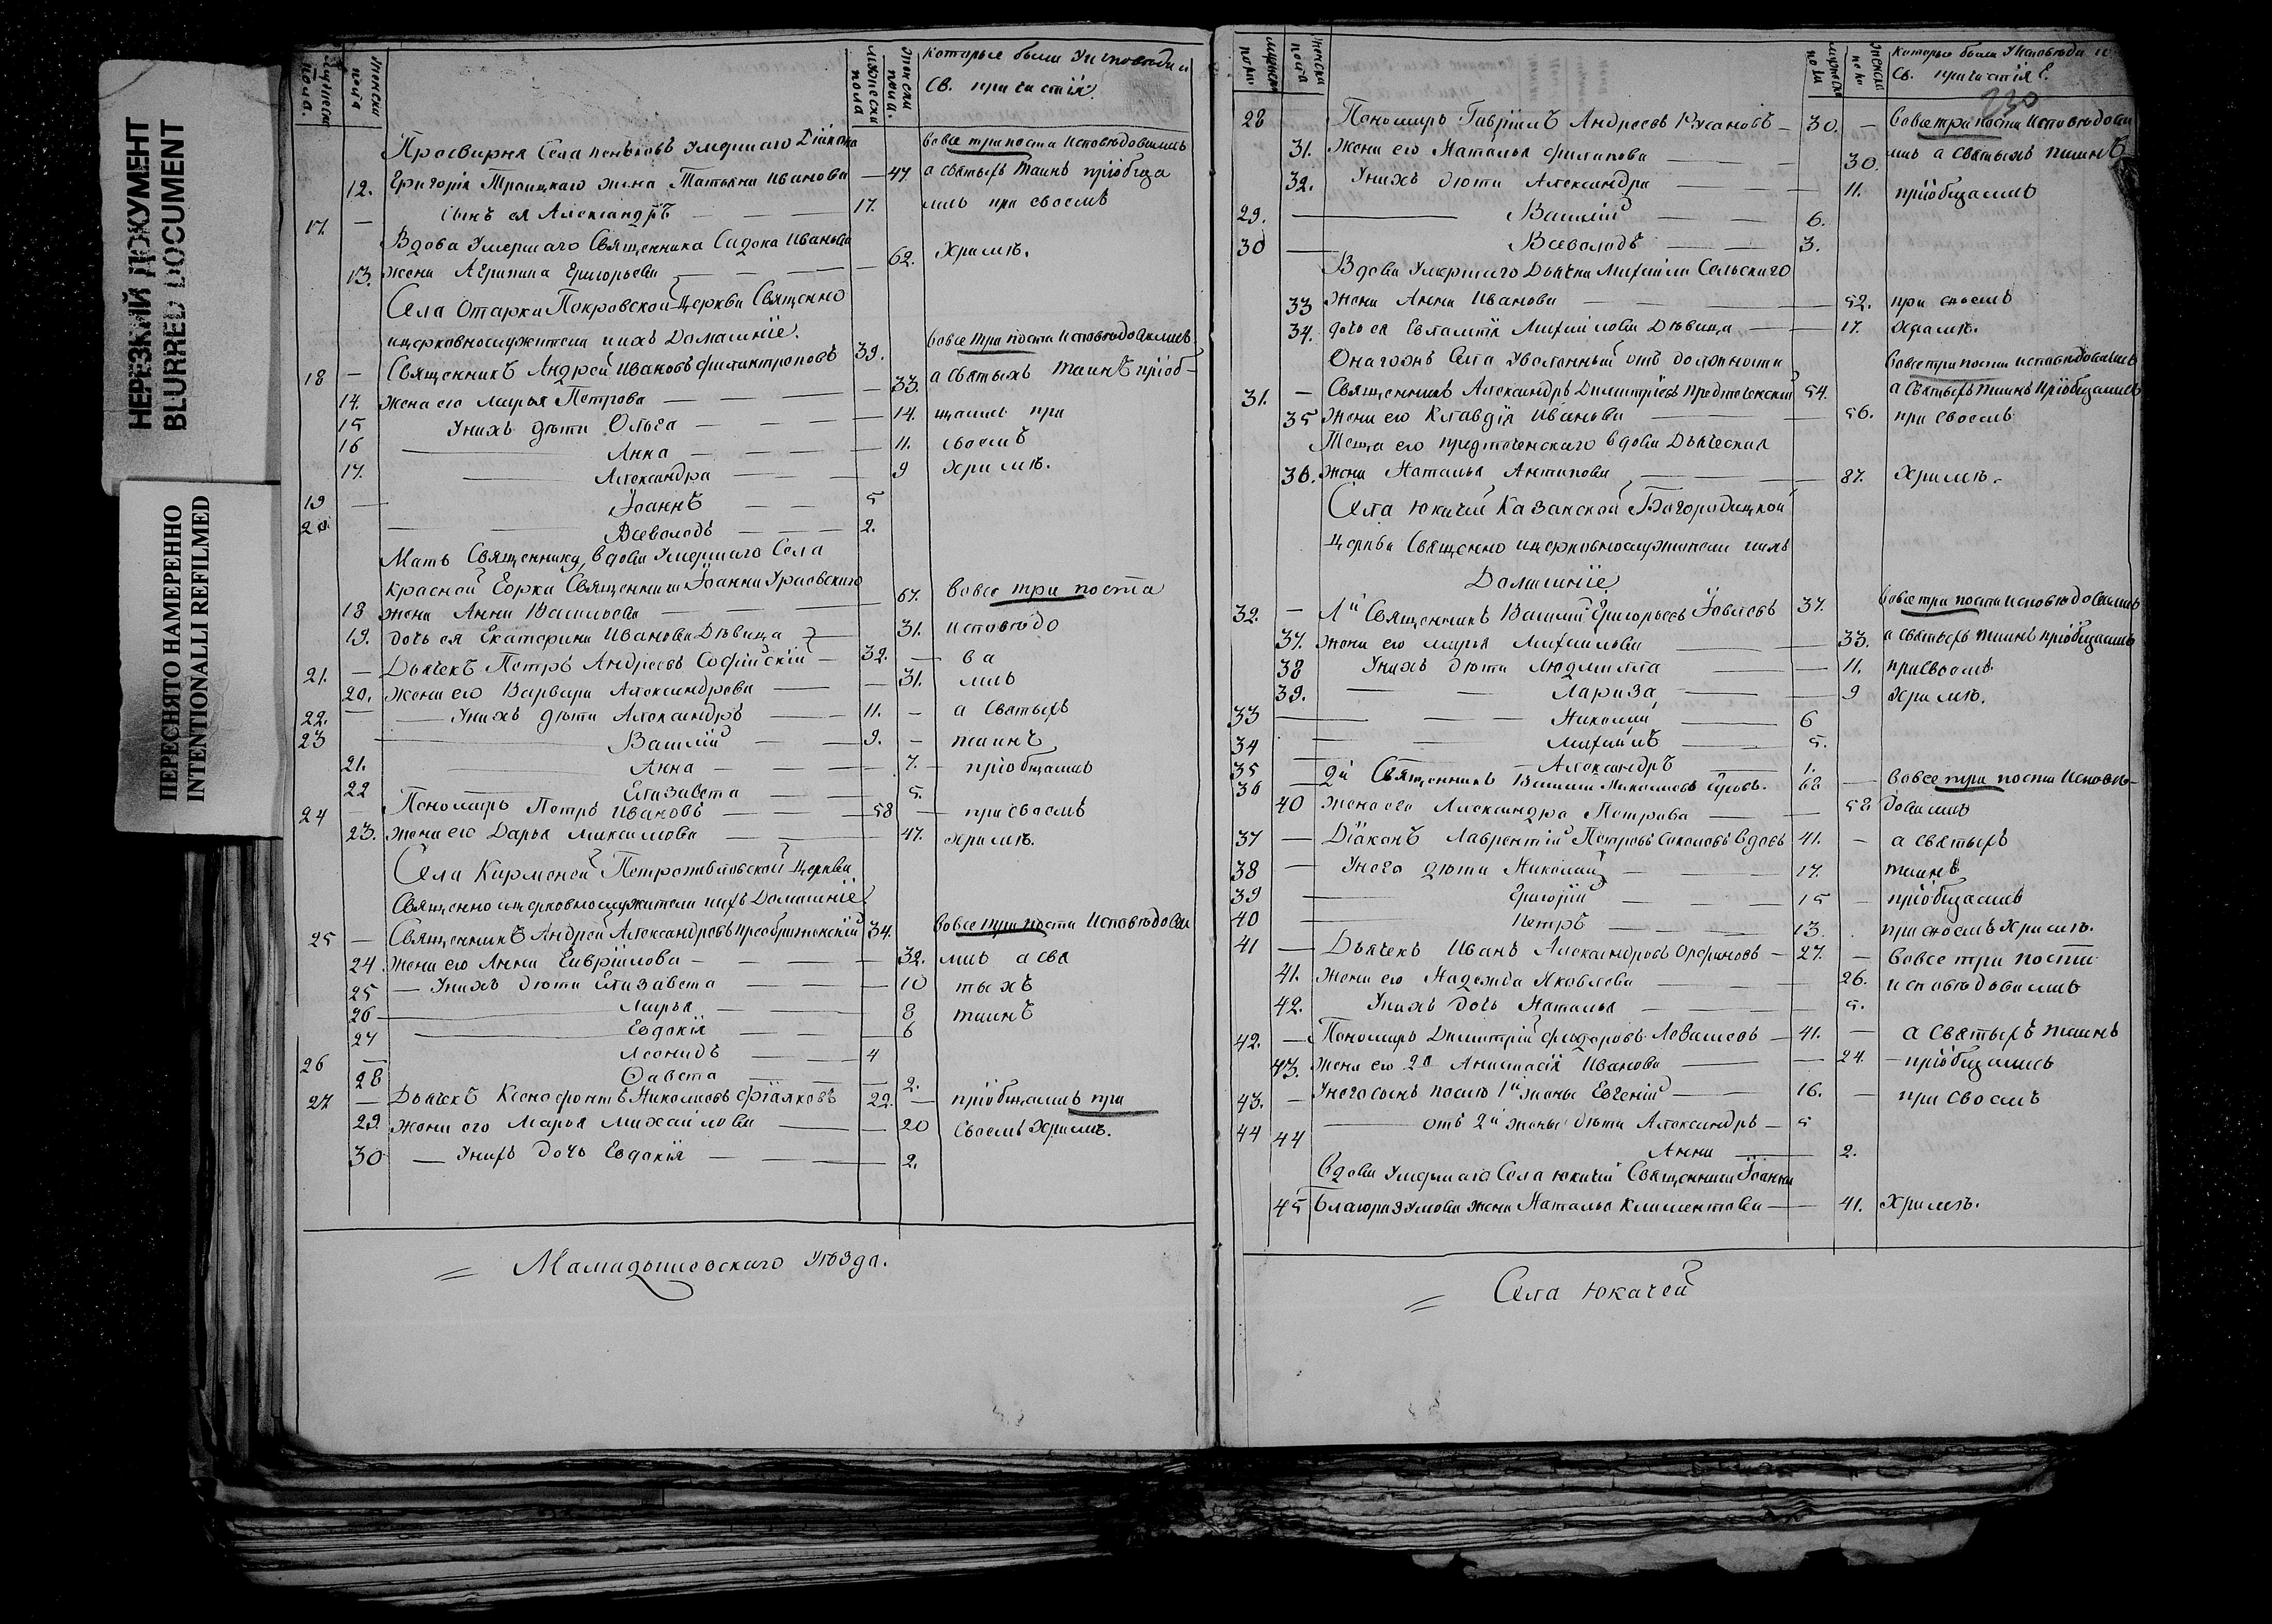 НЕРЕЗКИЙ ДОКУМЕНТ
BLURRED DOCUMENT
ПЕРЕСНЯТО НАМЕРЕННО
INTENTIONALLI REFILMED
мужеска пола. женска пола мужеска пола женска пола. которые были У исповеди и
Св. причастія.
Просвирня Села умершаго Діакона вовсе три поста исповѣдовались
12. Григорія Троицкаго жена Татьяна Иванова — 47. а святыхъ таинъ пріобща
17. — Сынъ ея Александръ — — — 17. лись при своемъ
Вдова Умершаго Священника Сидора Иванова
13. жена Агрипина Григорьева — — — 62. храмѣ.
Села Отарки Покровской Церкви Священно
ицерковнослужители ихъ Домашніе. вовсе три поста исповѣдовались
18 — Священникъ Андрей Ивановъ Филантроповъ 39. а святыхъ таинъ пріоб-
14. жена его Марья Петрова — — — — 33.
15 Унихъ дѣти Ольга — — — — 14. щались при
16 — Анна — — — — 11. своемъ
17. — Александра — — — 9 храмѣ.
19 — Іоаннъ — — 5
20. — Всеволодъ — — 2.
Мать Священника, вдова Умершаго Села
Красной Горки Священника Іоанна
18 жена Анна Васильева — — — 67. вовсе три поста
19. дочь ея Екатерина Иванова Дѣвица — 31. исповѣдо
21. — Дьячекъ Петръ Андреевъ Софійскій — 32. — ва
20. жена его Варвара Александрова — — 31. лись
22. — Унихъ дѣти Александръ — 11. — а святыхъ
23 — Василій — — 9. — таинъ
21. — Анна — — — 7. — пріобщались
22 — Елизавета — — — 5.
24 — Пономарь Петръ Ивановъ — — — 58 — при своемъ
23. жена его Дарья Максимова — — — 47. храмѣ.
Села Кирменей Петропавловской Церкви
Священно ицерковнослужители ихъ Домашніе
25 — Священникъ Андрей Александровъ Преображенскій 34. вовсе три поста исповѣдова
24. жена его Анна Гаврилова — — — 32. лись а свя
25 — Унихъ дѣти Елизавета — — — 10 тыхъ
26 — Марья — — — 8 таинъ
27 — Евдокія — — — 6
26 — Леонидъ — — 4
28 — — — — 2.
27. — Дьячекъ Ксенофонтъ Николаевъ Фіалковъ 22. — пріобщались при
29 жена его Марья Михайлова — — 20 своемъ храмѣ.
30 — Унихъ дочь Евдокія — — 2.
= Мамадышевскаго Уѣзда.
мужеска пола женска пола мужеска пола женска пола Которые были У исповѣди и
Св. причастія
230
28 Пономарь Гавріилъ Андреевъ — 30. — вовсе три поста исповѣдова
31. жена его Наталья Филипова — — — 30. лись а святыхъ таинъ
32. Унихъ дѣти Александра — — — 11. пріобщались
29. — Василій — — 6.
30 — Всеволодъ — — 3.
Вдова умершаго Дьячка Михаила Сельскаго
33 жена Анна Иванова — — — 52. при своемъ
34. дочь ея Евлампія Михайлова Дѣвица — — 17. храмѣ.
Онагожъ Села Уволенный отъ должности вовсе три поста исповѣдовались
31. — Священникъ Александръ Димитріевъ Предтеченскій 54. а святыхъ таинъ пріобщались
35 жена его Клавдія Иванова — — 56. при своемъ
Теща его Предтеченскаго вдова Дьяческая
36. жена Наталья Антипова — — 87. храмѣ.
Села Юкачей Казанской Богородицкой
Церкви Священно ицерковнослужители ихъ
Домашніе
32. — 1й Священникъ Василій Григорьевъ 37. вовсе три поста исповѣдовались
37. жена его Марья Михайлова — 33. а святыхъ таинъ пріобщались
38 Унихъ дѣти Людмилла — — 11. при своемъ
39. — — Лариза — — 9 храмѣ.
33 — — — Николай — 6
34 — — Михаилъ — 5.
35 — — Александръ — 1.
36 — 2й Священникъ Василій Николаевъ 62 — вовсе три поста исповѣ-
40 жена его Александра Петрова — — 58 довались
37 — Діаконъ Лаврентій Петровъ Соколовъ вдовъ 41. — а святыхъ
38 — Унего дѣти Николай — — 17. таинъ
39 — Григорій — — 15 — пріобщались
40 — Петръ — — 13. при своемъ храмѣ.
41 — Дьячекъ Иванъ Александровъ — 27. — вовсе три поста
41. жена его Надежда Яковлева — — 26. исповѣдовались
42. Унихъ дочь Наталья — — — 5.
42. — Пономарь Димитрій Федоровъ Левашевъ — 41. — а святыхъ таинъ
43. жена его 2я Анастасія Иванова — — 24. — пріобщались
43. — Унего сынъ послѣ 1й жены Евгеній — 16. — при своемъ
44 — отъ 2й жены дѣти Александръ — 5
44 Анна — 2.
вдова умершаго Села Юкачей Священника Іоанна
45 Благоразумова жена Наталья Климентова — — 41. храмѣ.
= Села Юкачей